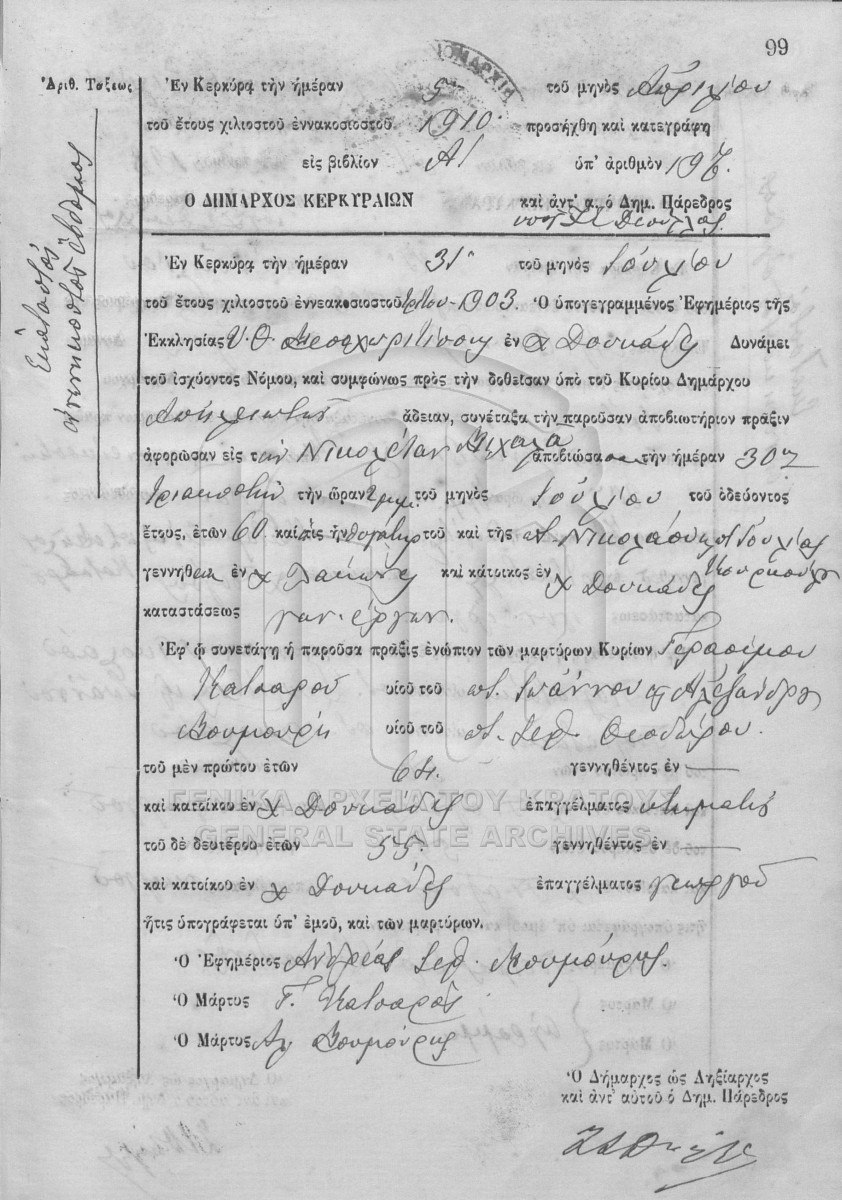 99
Ἀριθ. Τάξεως
Ἑκατοστός
ἐννενηκοστός ἕβδομος
Ἐν Κερκύρᾳ τὴν ἡμέραν 5ην τοῦ μηνὸς Ἀπριλίου
τοῦ ἔτους χιλιοστοῦ ἐννακοσιοστοῦ 1910 προσήχθη καὶ κατεγράφη
εἰς βιβλίον Α/ ὑπ' ἀριθμὸν 197.
Ο ΔΗΜΑΡΧΟΣ ΚΕΡΚΥΡΑΙΩΝ καὶ ἀντ' α. ὁ Δημ. Πάρεδρος
Ἐν Κερκύρᾳ τὴν ἡμέραν 31ην τοῦ μηνὸς Ἰουλίου
τοῦ ἔτους χιλιοστοῦ ἐννεακοσιοστοῦ τρίτου - 1903. Ὁ ὑπογεγραμμένος Ἐφημέριος τῆς
Ἐκκλησίας Υ. Θ. Μεσοχωριτίσσης ἐν χ Δουκάδες Δυνάμει
τοῦ ἰσχύοντος Νόμου, καὶ συμφώνως πρὸς τὴν δοθεῖσαν ὑπὸ τοῦ Κυρίου Δημάρχου
ἄδειαν, συνέταξα τὴν παροῦσαν ἀποβιωτήριον πρᾶξιν
ἀφορῶσαν εἰς τὴν Νικολέταν Μιχαλᾶ ἀποβιώσασαν τὴν ἡμέραν 30ην
τριακοστὴν τὴν ὥραν 2 μμ. τοῦ μηνὸς Ἰουλίου τοῦ ὁδεύοντος
ἔτους, ἐτῶν 60 καὶ τις ἦν θυγάτηρ τοῦ καὶ τῆς π. Νικολάου κ. Ἰουλίας
Κουρκούλη
γεννηθεῖσα ἐν χ Λάκωνες καὶ κάτοικος ἐν χ Δουκάδες
καταστάσεως γυν. ἔργων.
Ἐφ' ᾧ συνετάγη ἡ παροῦσα πρᾶξις ἐνώπιον τῶν μαρτύρων Κυρίων Γερασίμου
Κατσαροῦ υἱοῦ τοῦ π. Ἰωάννου κ Ἀλεξάνδρου
Βουμούρη υἱοῦ τοῦ π. Ἱερ. Θεοδώρου.
τοῦ μὲν πρώτου ἐτῶν 64. γεννηθέντος ἐν —
καὶ κατοίκου ἐν χ Δουκάδες ἐπαγγέλματος κτηματίου
τοῦ δὲ δευτέρου ἐτῶν 55. γεννηθέντος ἐν —
καὶ κατοίκου ἐν χ Δουκάδες ἐπαγγέλματος γεωργοῦ
ἥτις ὑπογράφεται ὑπ' ἐμοῦ, καὶ τῶν μαρτύρων.
Ὁ Ἐφημέριος Ἀνδρέας Ἱερ. Βουμούρης.
Ὁ Μάρτυς Γ. Κατσαρός
Ὁ Μάρτυς Αλ Βουμούρης
Ὁ Δήμαρχος ὡς Ληξίαρχος
καὶ ἀντ' αὐτοῦ ὁ Δημ. Πάρεδρος
ΓΕΝΙΚΑ ΑΡΧΕΙΑ ΤΟΥ ΚΡΑΤΟΥΣ
GENERAL STATE ARCHIVES